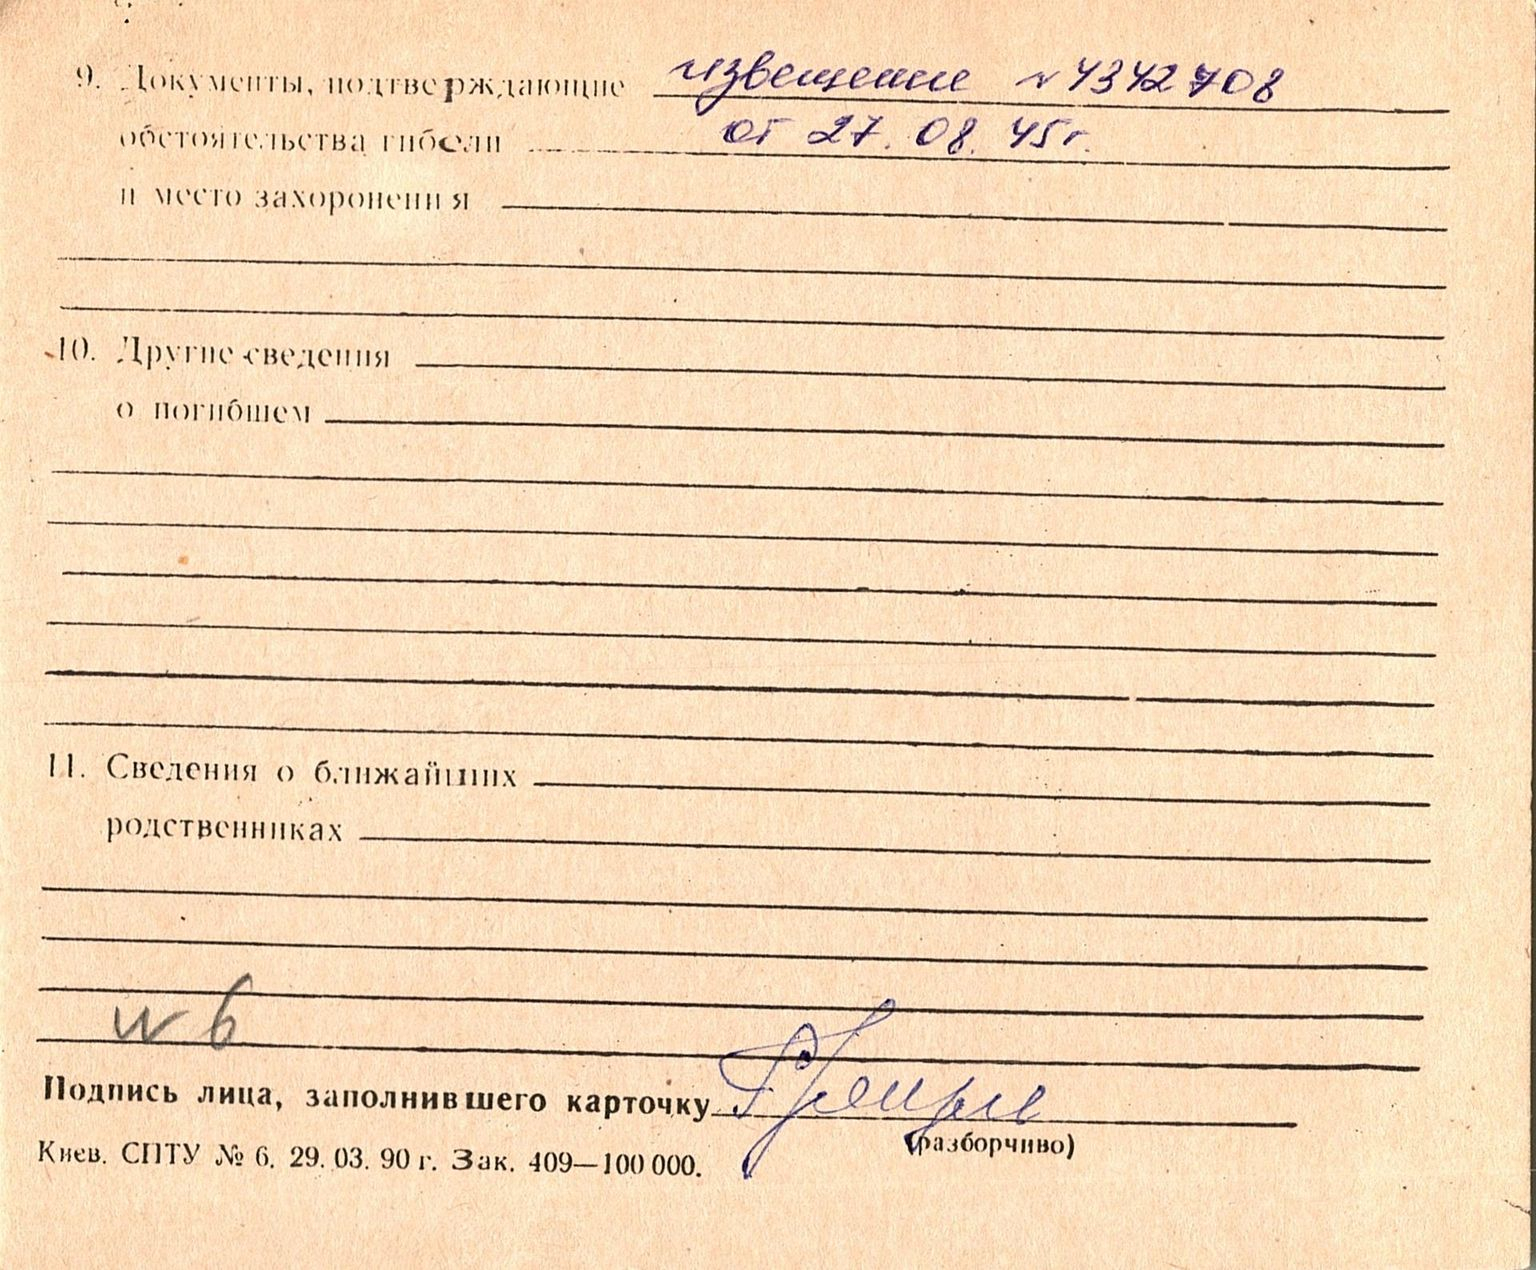 9. Документы, подтверждающие извещение № 4342708
обстоятельства гибели от 27. 08. 45 г.
и место захоронения
10. Другие сведения
о погибшем
11. Сведения о ближайших
родственниках
№ 6
Подпись лица, заполнившего карточку
(разборчиво)
Киев. СПТУ № 6. 29. 03. 90 г. Зак. 409—100 000.